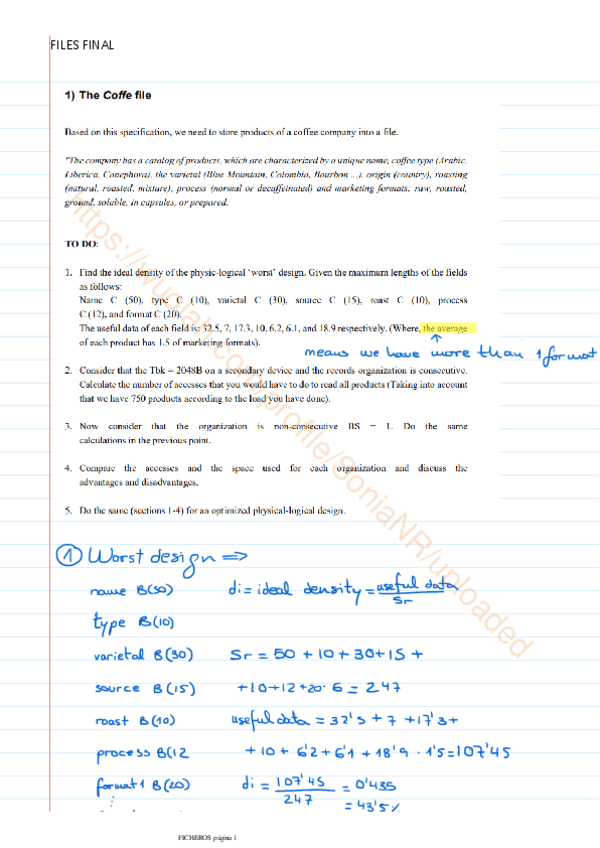 FILES FINAL
1) The Coffe file
Based on this specification, we need to store products of a coffee company into a file.
"The company has a catalog of products, which are characterized by a unique name, coffee type (Arabic,
Liberica, Canephora), the varietal (Blue Mountain, Colombia, Bourbon ...), origin (country), roasting
(natural, roasted, mixture), process (normal or decaffeinated) and marketing formats: raw, roasted,
ground, soluble, in capsules, or prepared.
TO DO:
1. Find the ideal density of the physic-logical 'worst' design. Given the maximum lengths of the fields
as follows:
Name C (50), type C (10), varietal C (30), source C (15), roast C (10), process
C (12), and format C (20).
The useful data of each field is: 32.5, 7, 17.3, 10, 6.2, 6.1, and 18.9 respectively. (Where, the average
of each product has 1.5 of marketing formats).
means we have more than 1 format
2. Consider that the Tbk = 2048B on a secondary device and the records organization is consecutive.
Calculate the number of accesses that you would have to do to read all products (Taking into account
that we have 750 products according to the load you have done).
3. Now consider that the organization is non-consecutive BS = 1. Do the same
calculations in the previous point.
4. Compare the accesses and the space used for each organization and discuss the
advantages and disadvantages.
5. Do the same (sections 1-4) for an optimized physical-logical design.
① Worst design ⇒
name B(50) di = ideal density = useful data / Sr
type B(10)
varietal B(30) Sr = 50 + 10 + 30 + 15 +
source B(15) +10+12+20·6 = 247
roast B(10) useful data = 32'5 + 7 + 17'3 +
process B(12 + 10 + 6'2 + 6'1 + 18'9 · 1'5 = 107'45
format1 B(20) di = 107'45 / 247 = 0'435
= 43'5%
https://wuolah.com/profile/SoniaNR/uploaded
FICHEROS página 1